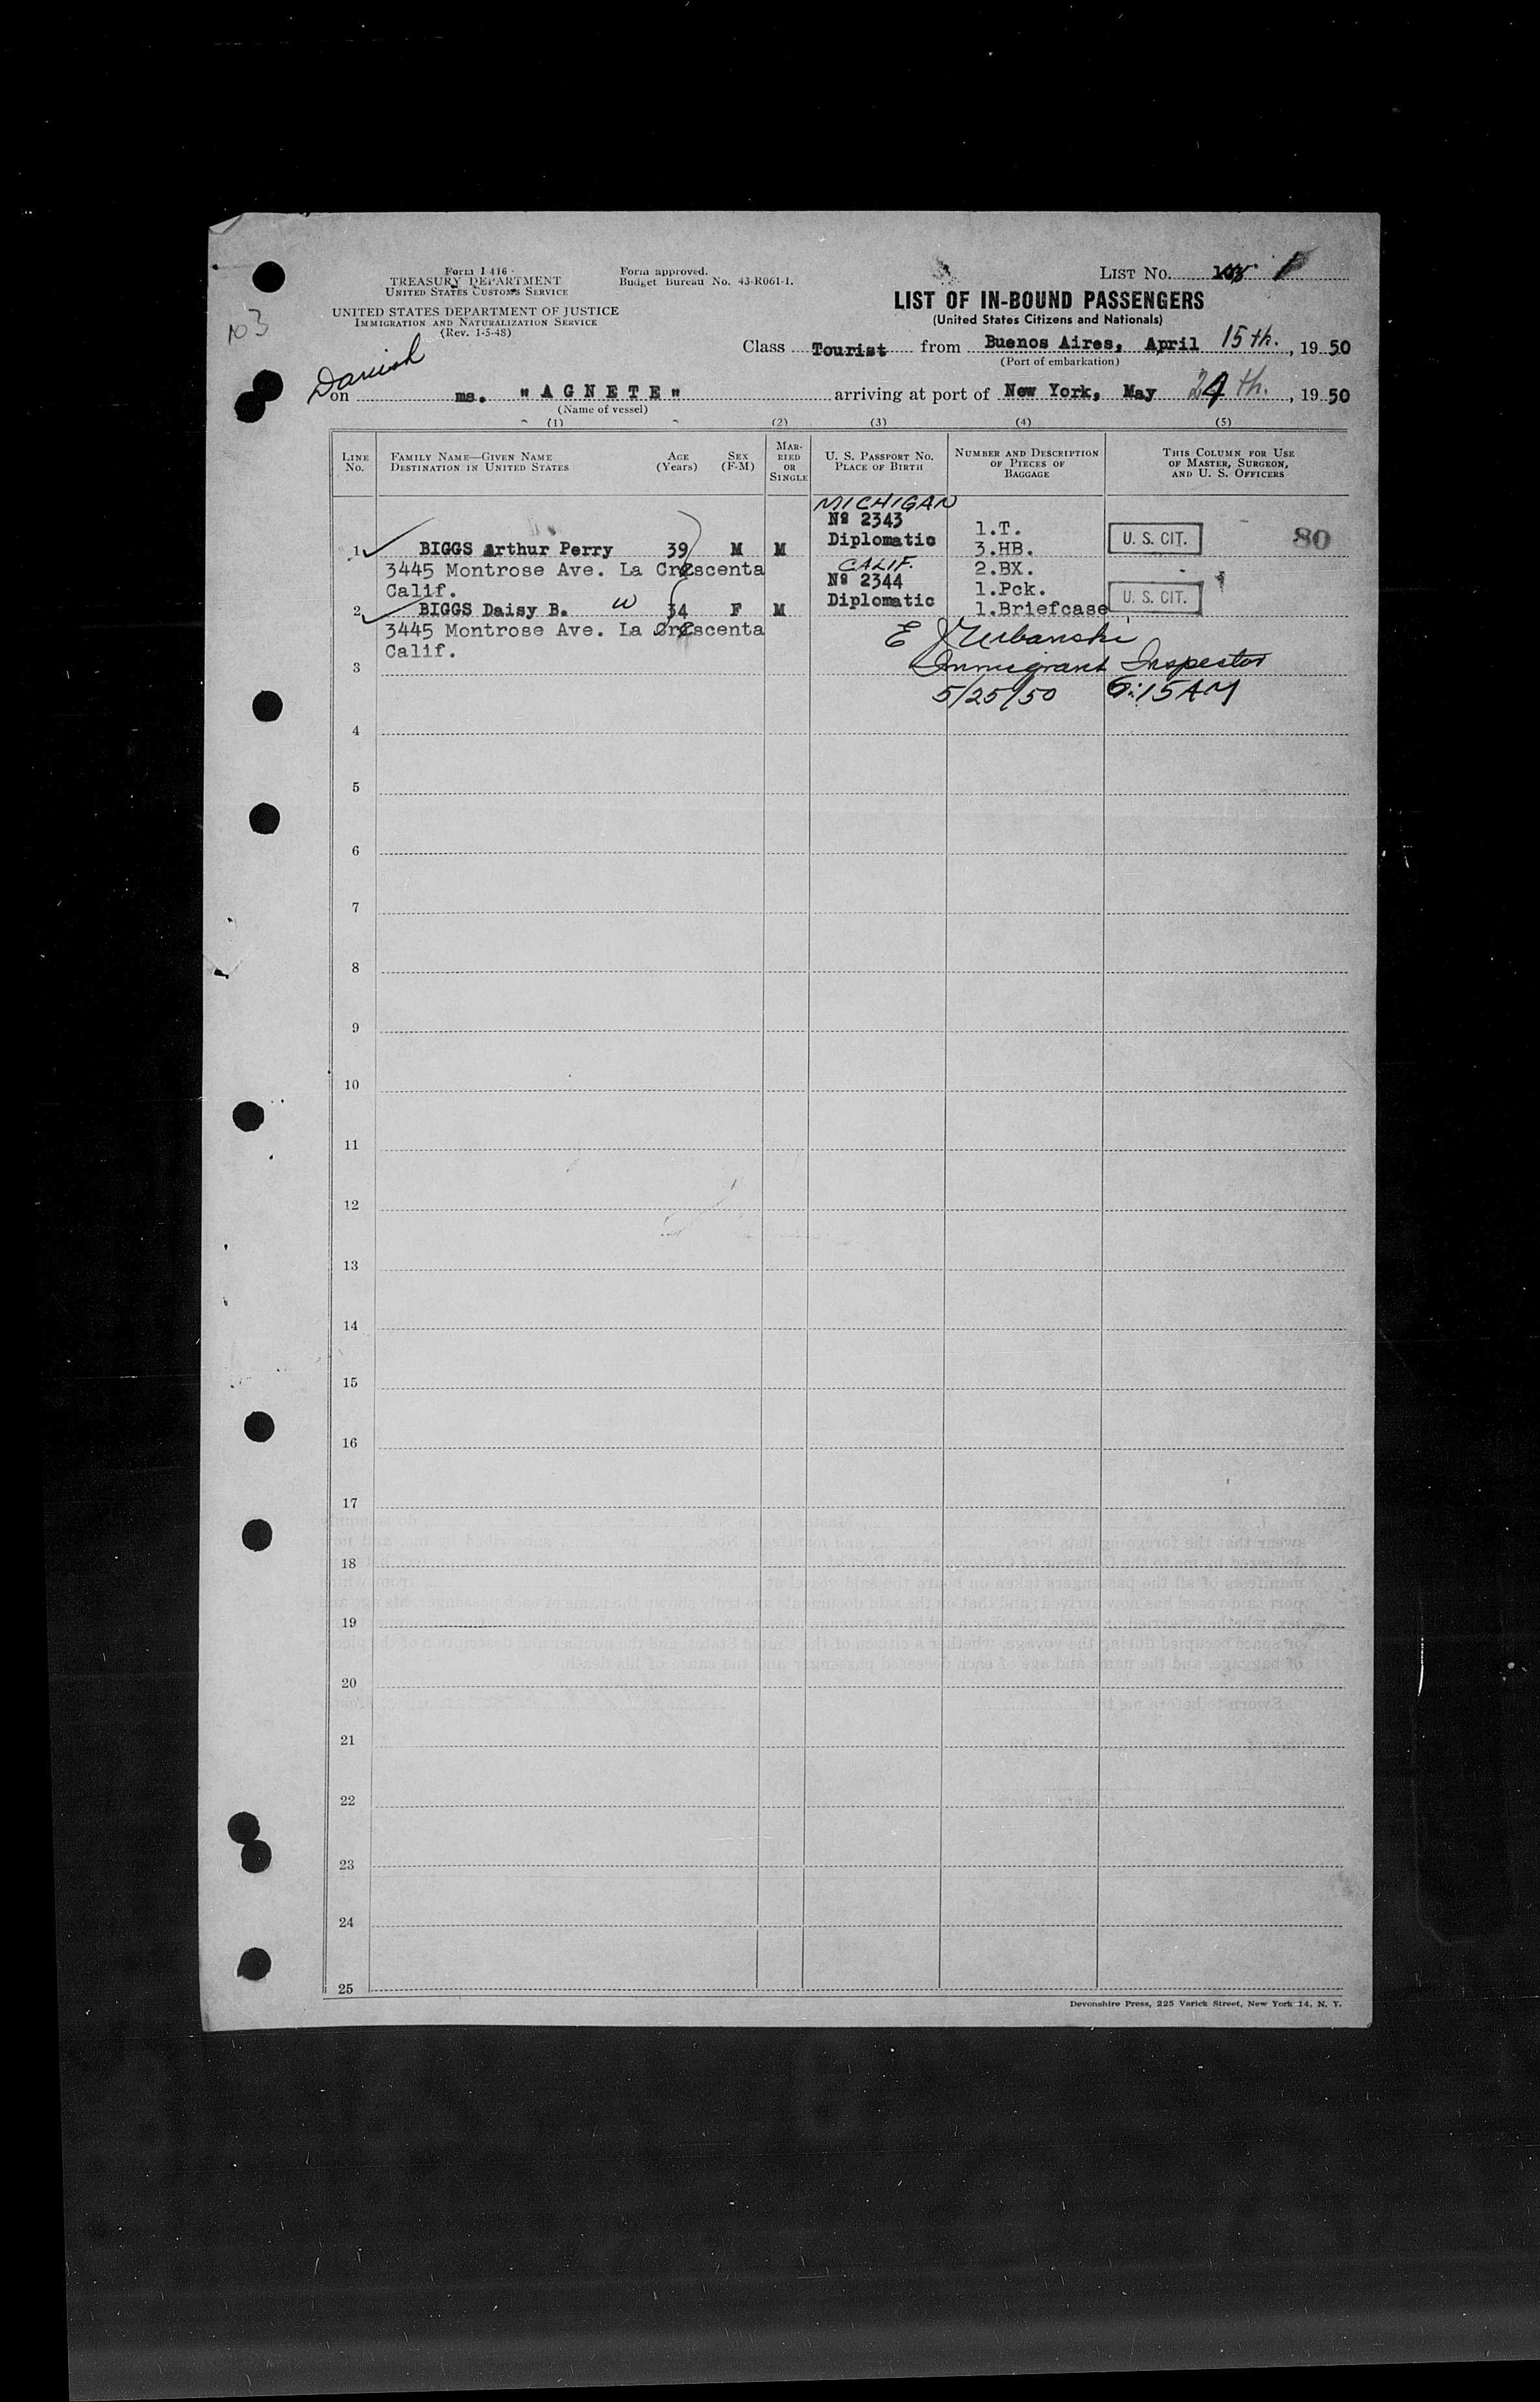 Form I 416
TREASURY DEPARTMENT
UNITED STATES CUSTOMS SERVICE
UNITED STATES DEPARTMENT OF JUSTICE
IMMIGRATION AND NATURALIZATION SERVICE
(Rev. 1-5-48)
Form approved.
Budget Bureau No. 43-R061-1.
LIST NO. 1
LIST OF IN-BOUND PASSENGERS
(United States Citizens and Nationals)
103
Class Tourist from Buenos Aires, April 15th., 1950
(Port of embarkation)
Danish
on ms. "AGNETE" arriving at port of New York, May 24th., 1950
(Name of vessel)
(1) (2) (3) (4) (5)
LINE NO.
FAMILY NAME—GIVEN NAME
DESTINATION IN UNITED STATES
AGE (Years)
SEX (F-M)
MARRIED OR SINGLE
U. S. PASSPORT NO.
PLACE OF BIRTH
NUMBER AND DESCRIPTION OF PIECES OF BAGGAGE
THIS COLUMN FOR USE OF MASTER, SURGEON, AND U. S. OFFICERS
MICHIGAN
No 2343 1.T.
1 BIGGS Arthur Perry 39 M M Diplomatic 3.HB. U. S. CIT. 80
3445 Montrose Ave. La Crescenta CALIF. 2.BX.
Calif. No 2344 1.Pck.
2 BIGGS Daisy B. W 34 F M Diplomatic 1.Briefcase U. S. CIT.
3445 Montrose Ave. La Crescenta
Calif.
E J Urbanski
Immigrant Inspector
5/25/50 6:15 AM
3
4
5
6
7
8
9
10
11
12
13
14
15
16
17
18
19
20
21
22
23
24
25
Devonshire Press, 225 Varick Street, New York 14, N. Y.